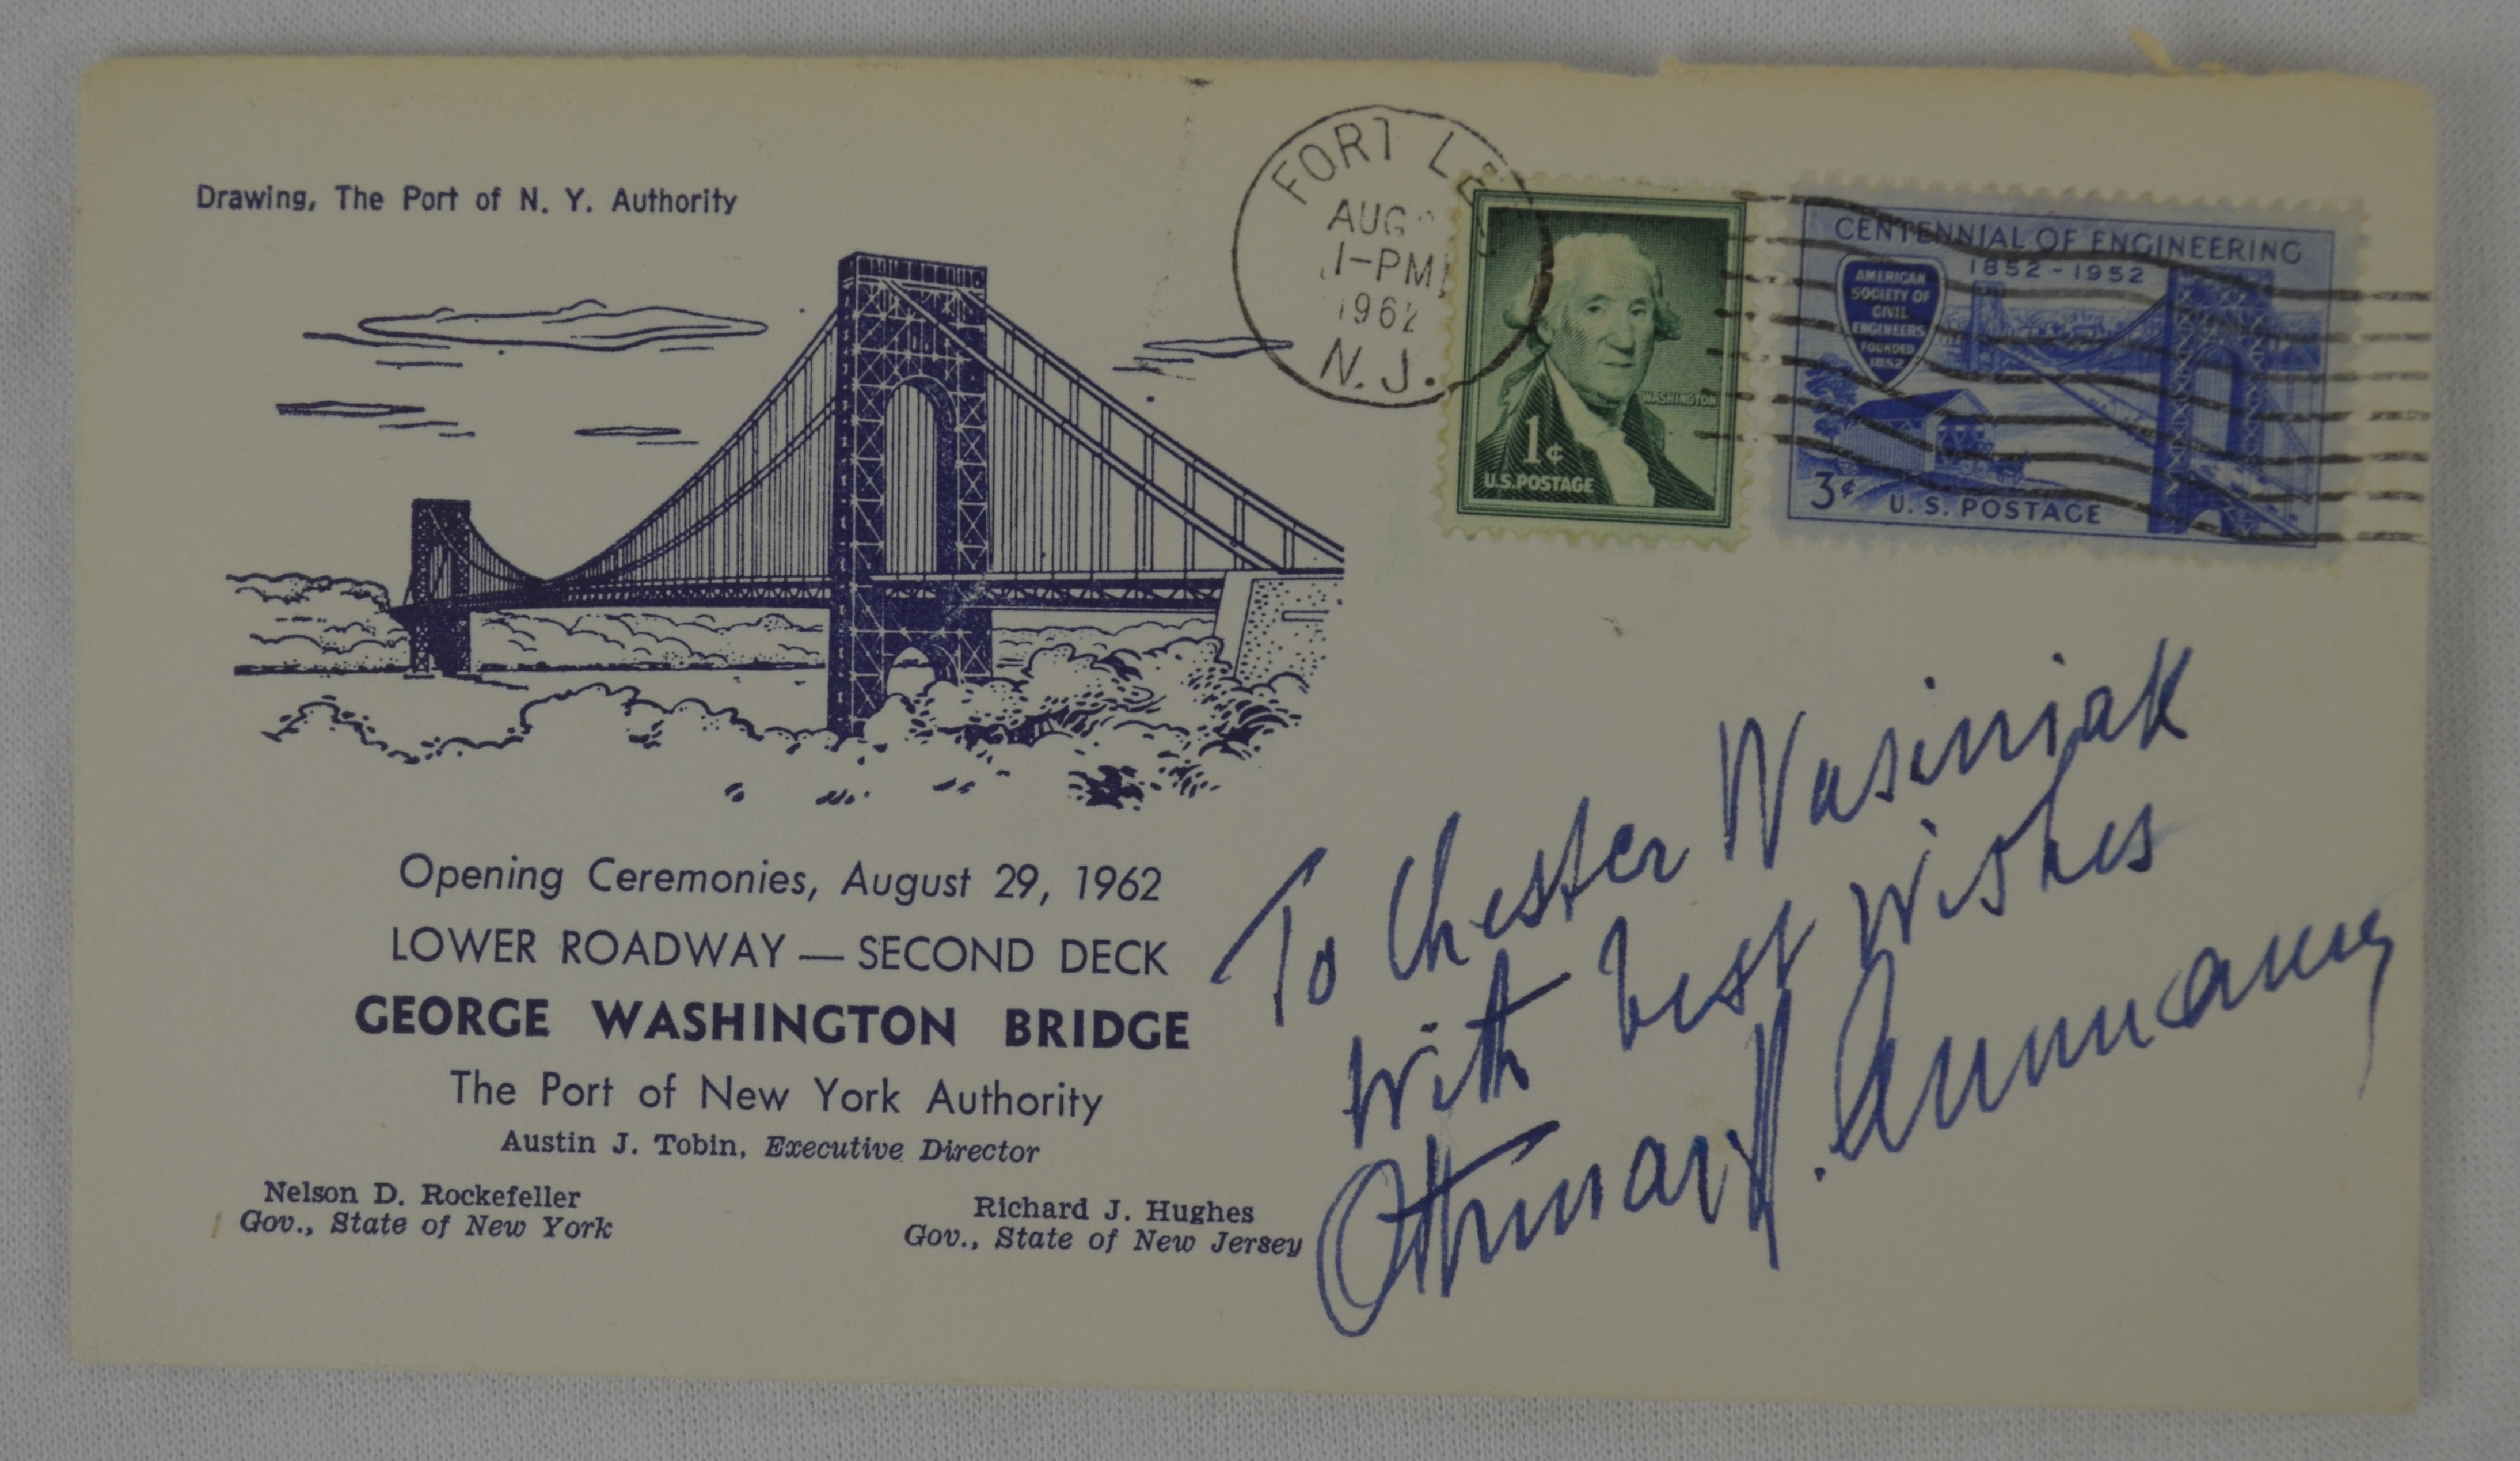 Drawing, The Port of N. Y. Authority
FORT LEE
AUG
1-PM
1962
N.J.
WASHINGTON
1¢
U.S.POSTAGE
CENTENNIAL OF ENGINEERING
1852-1952
AMERICAN
SOCIETY OF
CIVIL
ENGINEERS
FOUNDED
1852
3¢ U. S. POSTAGE
Opening Ceremonies, August 29, 1962
LOWER ROADWAY — SECOND DECK
GEORGE WASHINGTON BRIDGE
The Port of New York Authority
Austin J. Tobin, Executive Director
Nelson D. Rockefeller
Gov., State of New York
Richard J. Hughes
Gov., State of New Jersey
To Chester Wasiniak
With best Wishes
Othmar H. Ammann